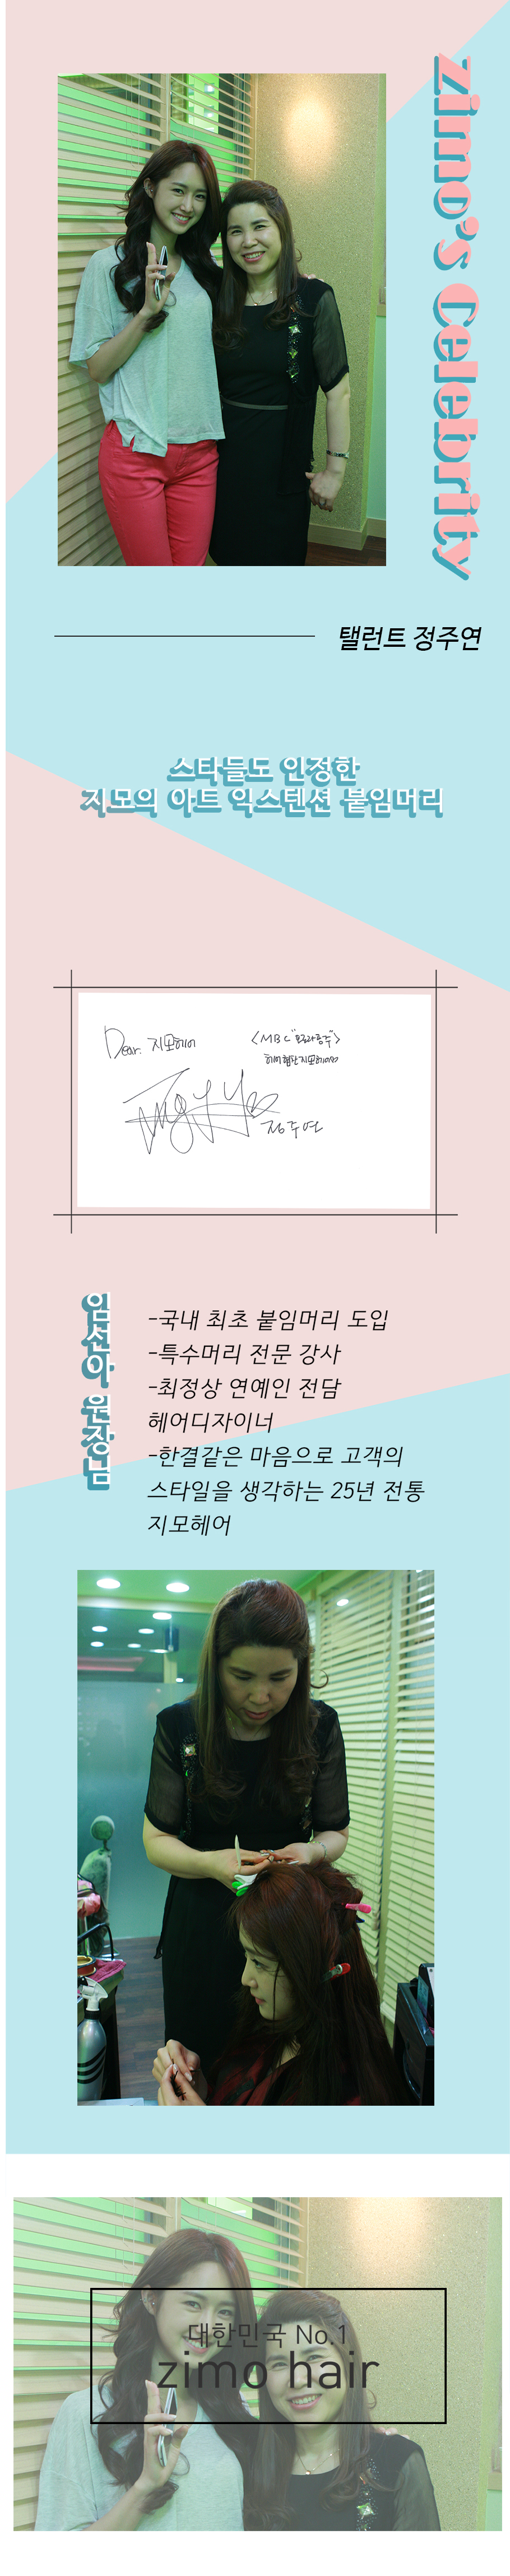 zimo's Celebrity
탤런트 정주연
스타들도 인정한
지모의 아트 익스텐션 붙임머리
Dear. 지모헤어
<MBC "오로라공주">
헤어협찬 지모헤어
정주연
임선아 원장님
-국내 최초 붙임머리 도입
-특수머리 전문 강사
-최정상 연예인 전담
헤어디자이너
-한결같은 마음으로 고객의
스타일을 생각하는 25년 전통
지모헤어
대한민국 No.1
zimo hair